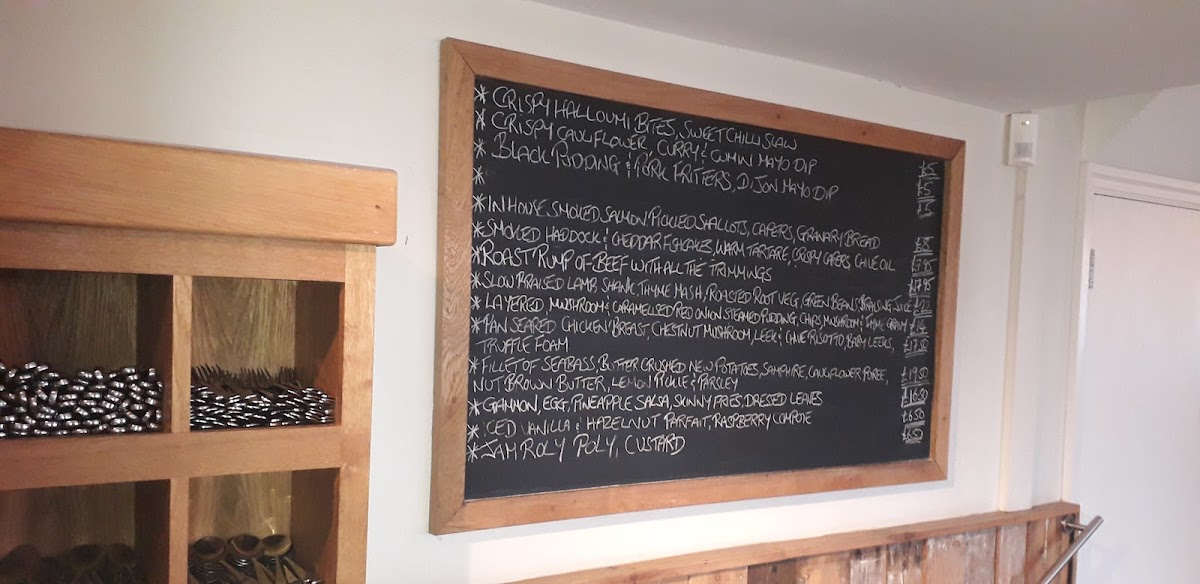 * CRISPY HALLOUMI BITES, SWEET CHILLI SLAW £5
* CRISPY CAULIFLOWER, CURRY & CUMIN MAYO DIP £5
* BLACK PUDDING & PORK FRITTERS, DIJON MAYO DIP £5
*
* IN HOUSE SMOKED SALMON PICKLED SHALLOTS, CAPERS, GRANARY BREAD £8
* SMOKED HADDOCK & CHEDDAR FISHCAKES, WARM TARTARE, CRISPY CAPERS CHIVE OIL £7.95
* ROAST RUMP OF BEEF WITH ALL THE TRIMMINGS £17.95
* SLOW BRAISED LAMB SHANK, THYME MASH, ROASTED ROOT VEG, GREEN BEANS, BRAISING JUICE £22
* LAYERED, MUSHROOM & CARAMELISED RED ONION STEAMED PUDDING, CHIPS, MUSHROOM & THYME GRAVY £14
* PAN SEARED CHICKEN BREAST, CHESTNUT MUSHROOM, LEEK & CHIVE RISOTTO, BABY LEEKS, £17.50
TRUFFLE FOAM
* FILLET OF SEABASS, BUTTER CRUSHED NEW POTATOES, SAMPHIRE, CAULIFLOWER PUREE, £19.50
NUT BROWN BUTTER, LEMON PICKLE & PARSLEY
* GAMMON, EGG, PINEAPPLE SALSA, SKINNY FRIES, DRESSED LEAVES £16.50
* ICED VANILLA & HAZELNUT PARFAIT, RASPBERRY COMPOTE £6.50
* JAM ROLY POLY, CUSTARD £6.50